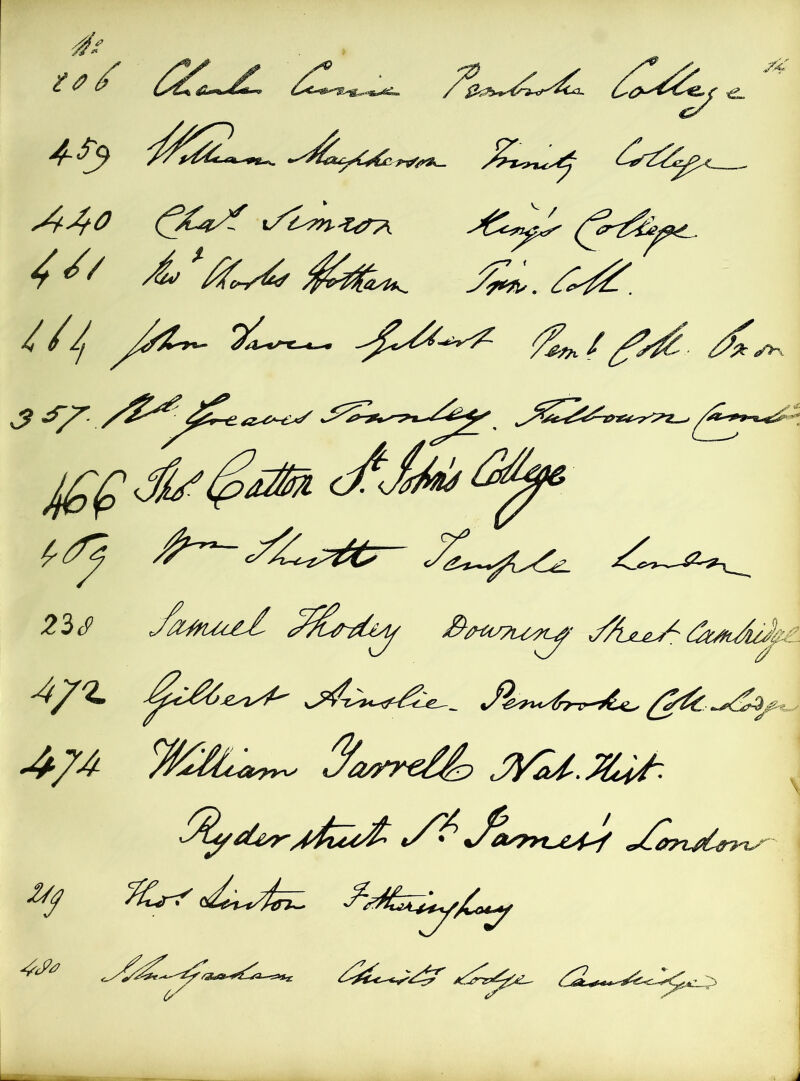 No
206 Charles Currie Pembroke College
459 William Macpherson Trinity College
440 Chas. Simeon King's College
461 Revd Charles Hotham Trin. Coll.
464 John Davies Gilbert Pemb Coll. Oxon
357. Rd. Greaves Townley. Fulbourn Camb
466 Thos. Catton St. John's College
469 Wm Temple London
238 Samuel Thodey Downing Street. Cambridge
472 Gilbert Ainslie - Pembroke Coll. Lodge
474 William Yarrell Nat. Hist.
Ryder street St. James's London
219 Thos. Linton Fotheringhay
480 John Graham Christ's Lodge Cambridge